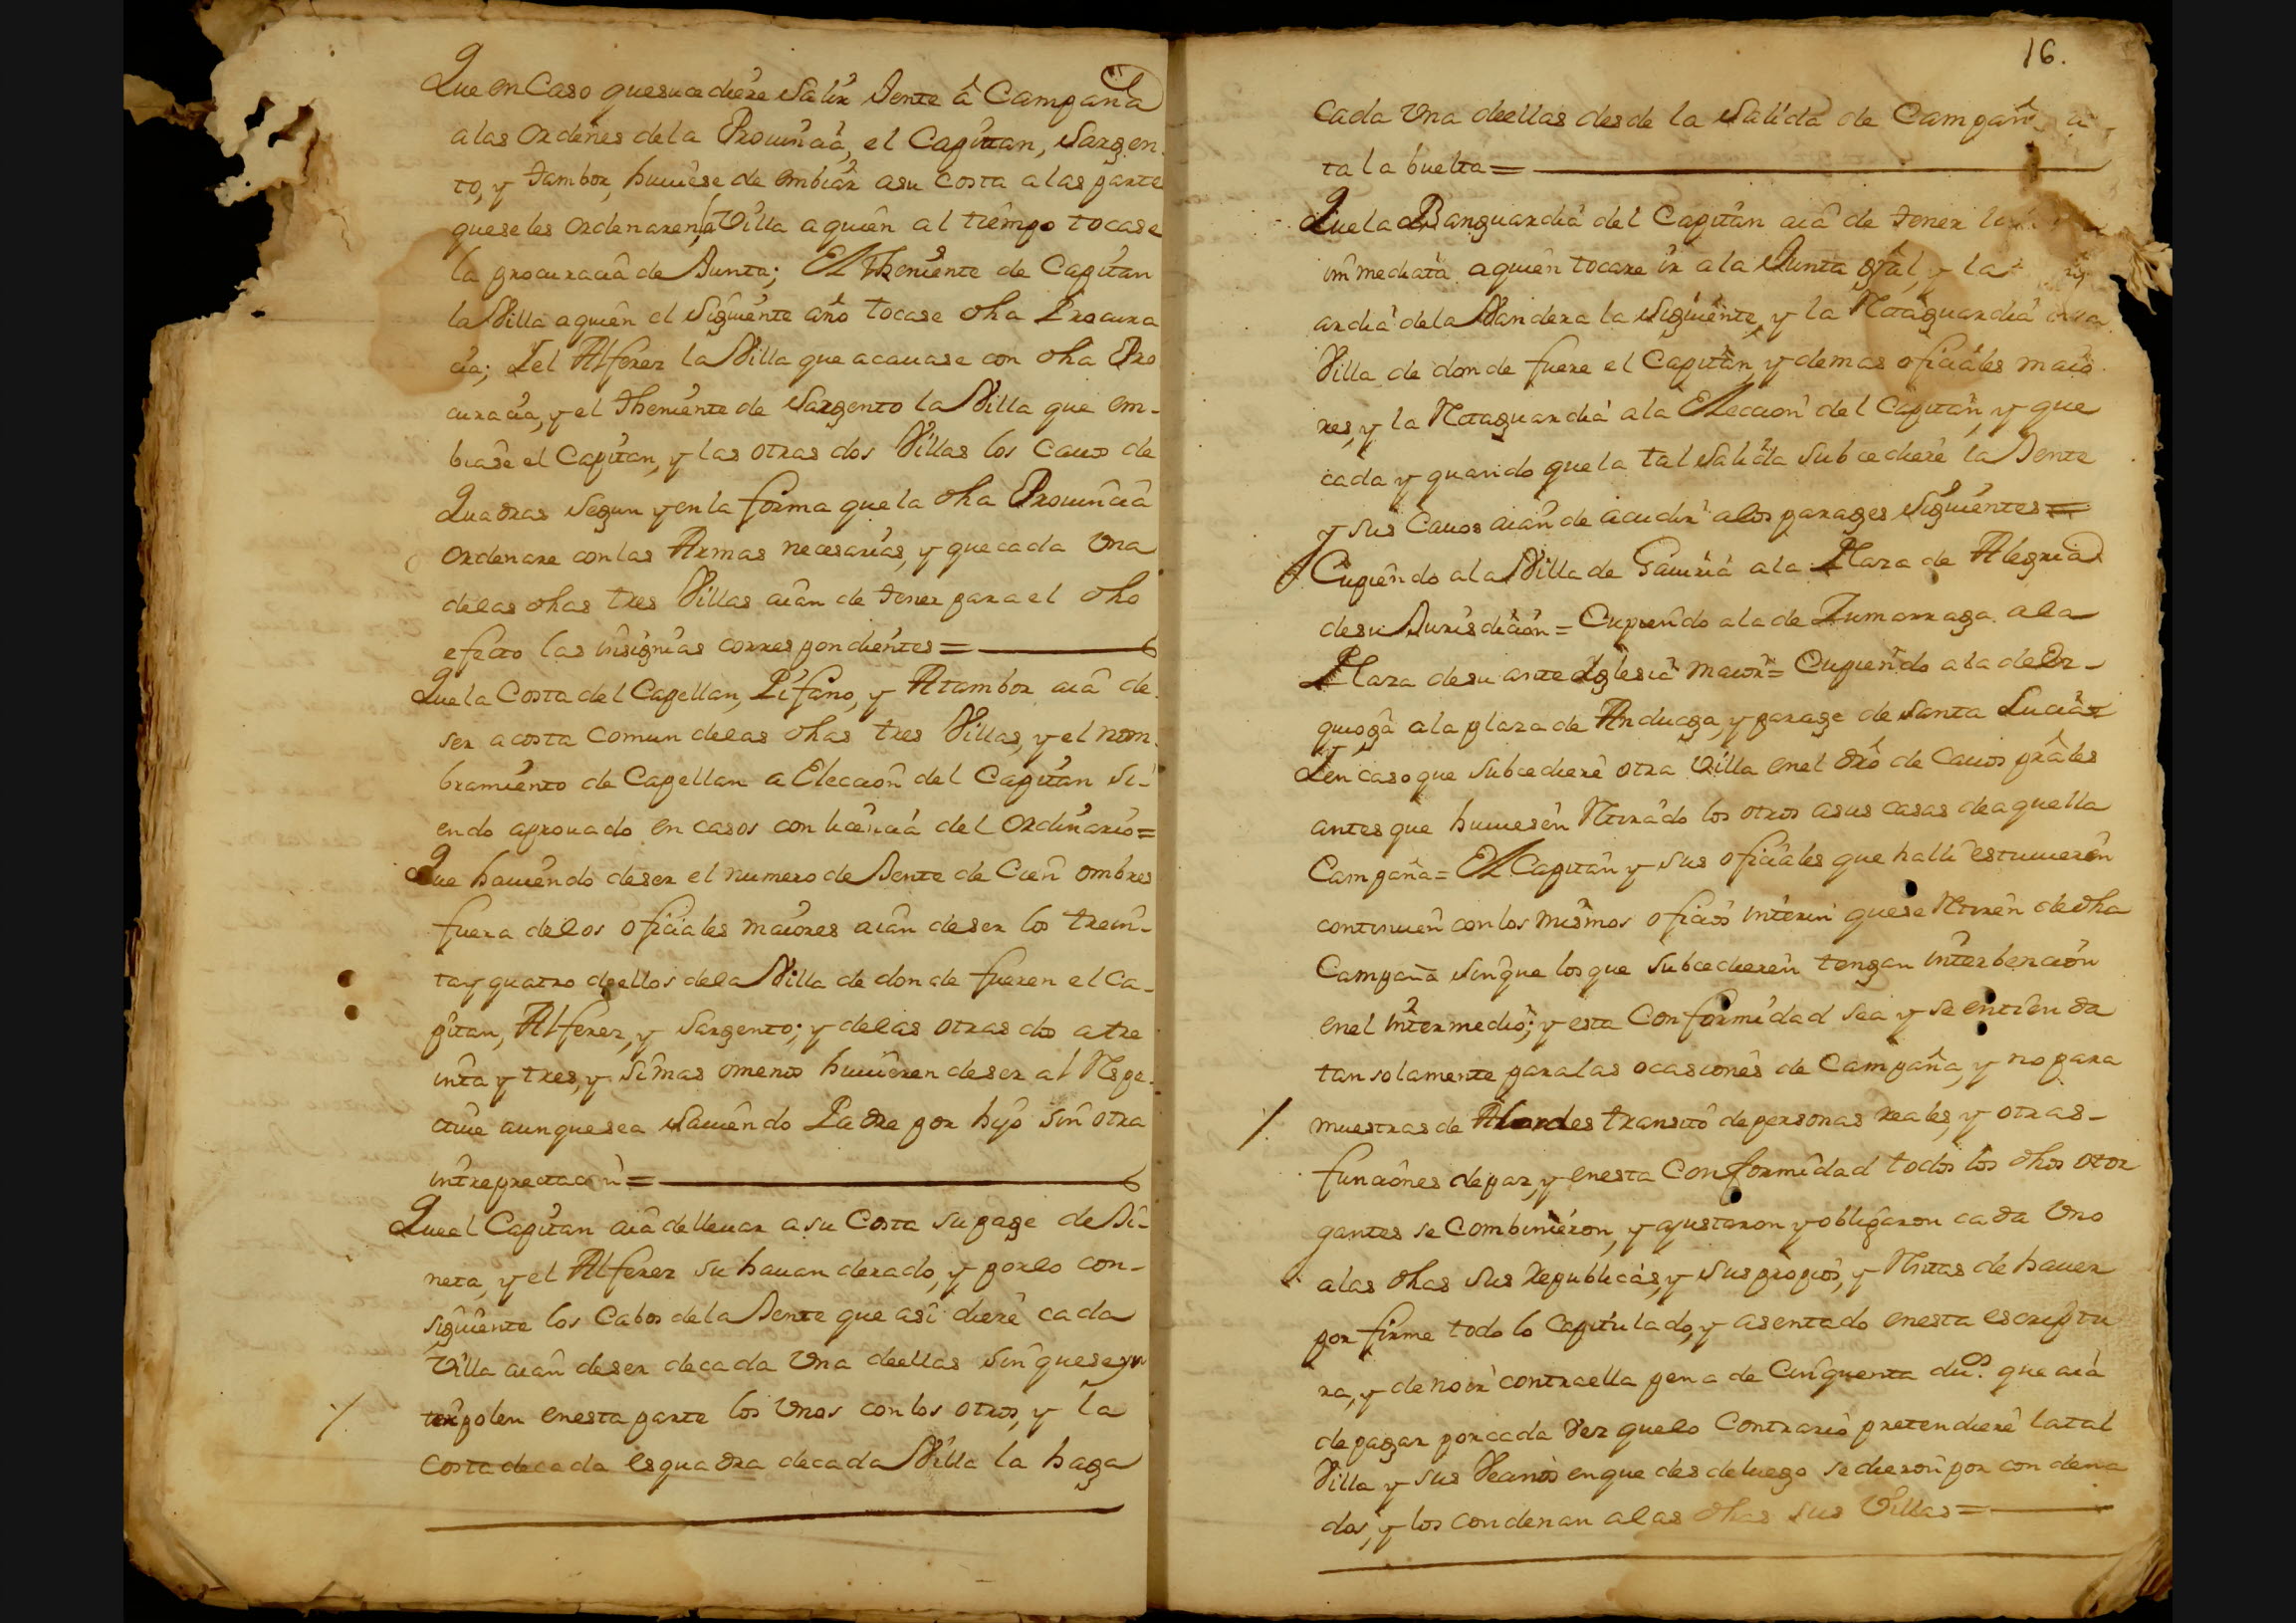 Que en Caso que sucediere Salir Jente â Campaña
a las Ordenes de la Prouinçia, el Capitan, Sargen-
to, y Tambor, huuiese de embiar a su costa a las parte
que se les Ordenaren la Villa a quien al tiempo tocase
la procuraçia de Junta; El Theniente de Capitan
la Villa a quien el Siguiente año tocase dha Procura
çia; Y el Alferez la Villa que acauase con dha Pro
curaçia, y el Theniente de Sargento la Villa que em-
biase el Capitan, y las otras dos Villas los Cauos de
Quadras Segun y en la forma que la dha Prouinçia
Ordenare con las Armas necesarias, y que cada Vna
de las dhas tres Villas aian de tener para el dho
efecto las insignias correspondientes =
Que la Costa del Capellan, Pifano, y Atambor aia de
ser a costa Comun de las dhas tres Villas, y el nom-
bramiento de Capellan a Elecçion del Capitan Si-
endo aprouado en casos con liçençia del Ordinario =
Que hauiendo de ser el numero de Jente de Cien ombres
fuera de los ofiçiales maiores aian de ser los trein-
ta y quatro de ellos de la Villa de donde fueren el Ca-
pitan, Alferez, y Sargento; y de las otras dos a tre
inta y tres, y Si mas o menos huuieren de ser al Respe-
ctiue aunque sea Sauiendo Padre por hijo Sin otra
intrepretaçion =
Que el Capitan aia de lleuar a su Costa su page de Ji-
neta, y el Alferez su hauanderado, y por lo con-
siguiente los Cabos de la Jente que asi diere cada
Villa aian de ser de cada Vna de ellas Sin que se yn
terpolen en esta parte los Vnos con los otros, y la
Costa de cada esquadra de cada Villa la haga
16.
Cada Vna de ellas desde la Salida de Campaña
ta la buelta =
Que la Banguardia del Capitan aia de tener la
immediata a quien tocare ir a la Junta gral, y la
ardia de la Vandera la Siguiente, y la Retaguardia
Villa de donde fuere el Capitan, y demas ofiçiales maio-
res, y la Retaguardia a la Elecçion del Capitan, y que
cada y quando que la tal Salida Subcediere la Jente
y sus Cauos aian de acudir a los parages Siguientes =
Cupiendo a la Villa de Gauiria a la Plaza de Alegria
de su Jurisdiçion = Cupiendo a la de Zumarraga a la
Plaza de su ante Iglesia maior = Cupiendo a la de Ez-
quioga a la plaza de Anduaga, y parage de Santa Luçia =
Y en caso que Subcediere otra Villa en el dro de Cauos prales
antes que huuiesen Retirado los otros a sus casas de aquella
Campaña = El Capitan y sus ofiçiales que halli estuuieren
continuen con los mismos ofiçios interin que se Retiren de dha
Campaña Sin que los que Subcedieren tengan interbençion
en el intermedio; y esta Conformidad sea y se entienda
tan solamente para las ocasiones de Campaña, y no para
muestras de Alardes transito de personas reales, y otras
funçiones de paz, y en esta Conformidad todos los dhos otor
gantes se Combinieron, y ajustaron y obligaron cada Vno
a las dhas Sus Republicas, y Sus propios, y Rentas de hauer
por firme todo lo Capitulado, y asentado en esta escriptu
ra, y de no ir contra ella pena de Cinquenta dus. que aia
de pagar por cada Vez que lo Contrario pretendiere la tal
Villa y sus Veçinos en que desde luego se dieron por condena
dos, y los condenan a las dhas sus Villas =